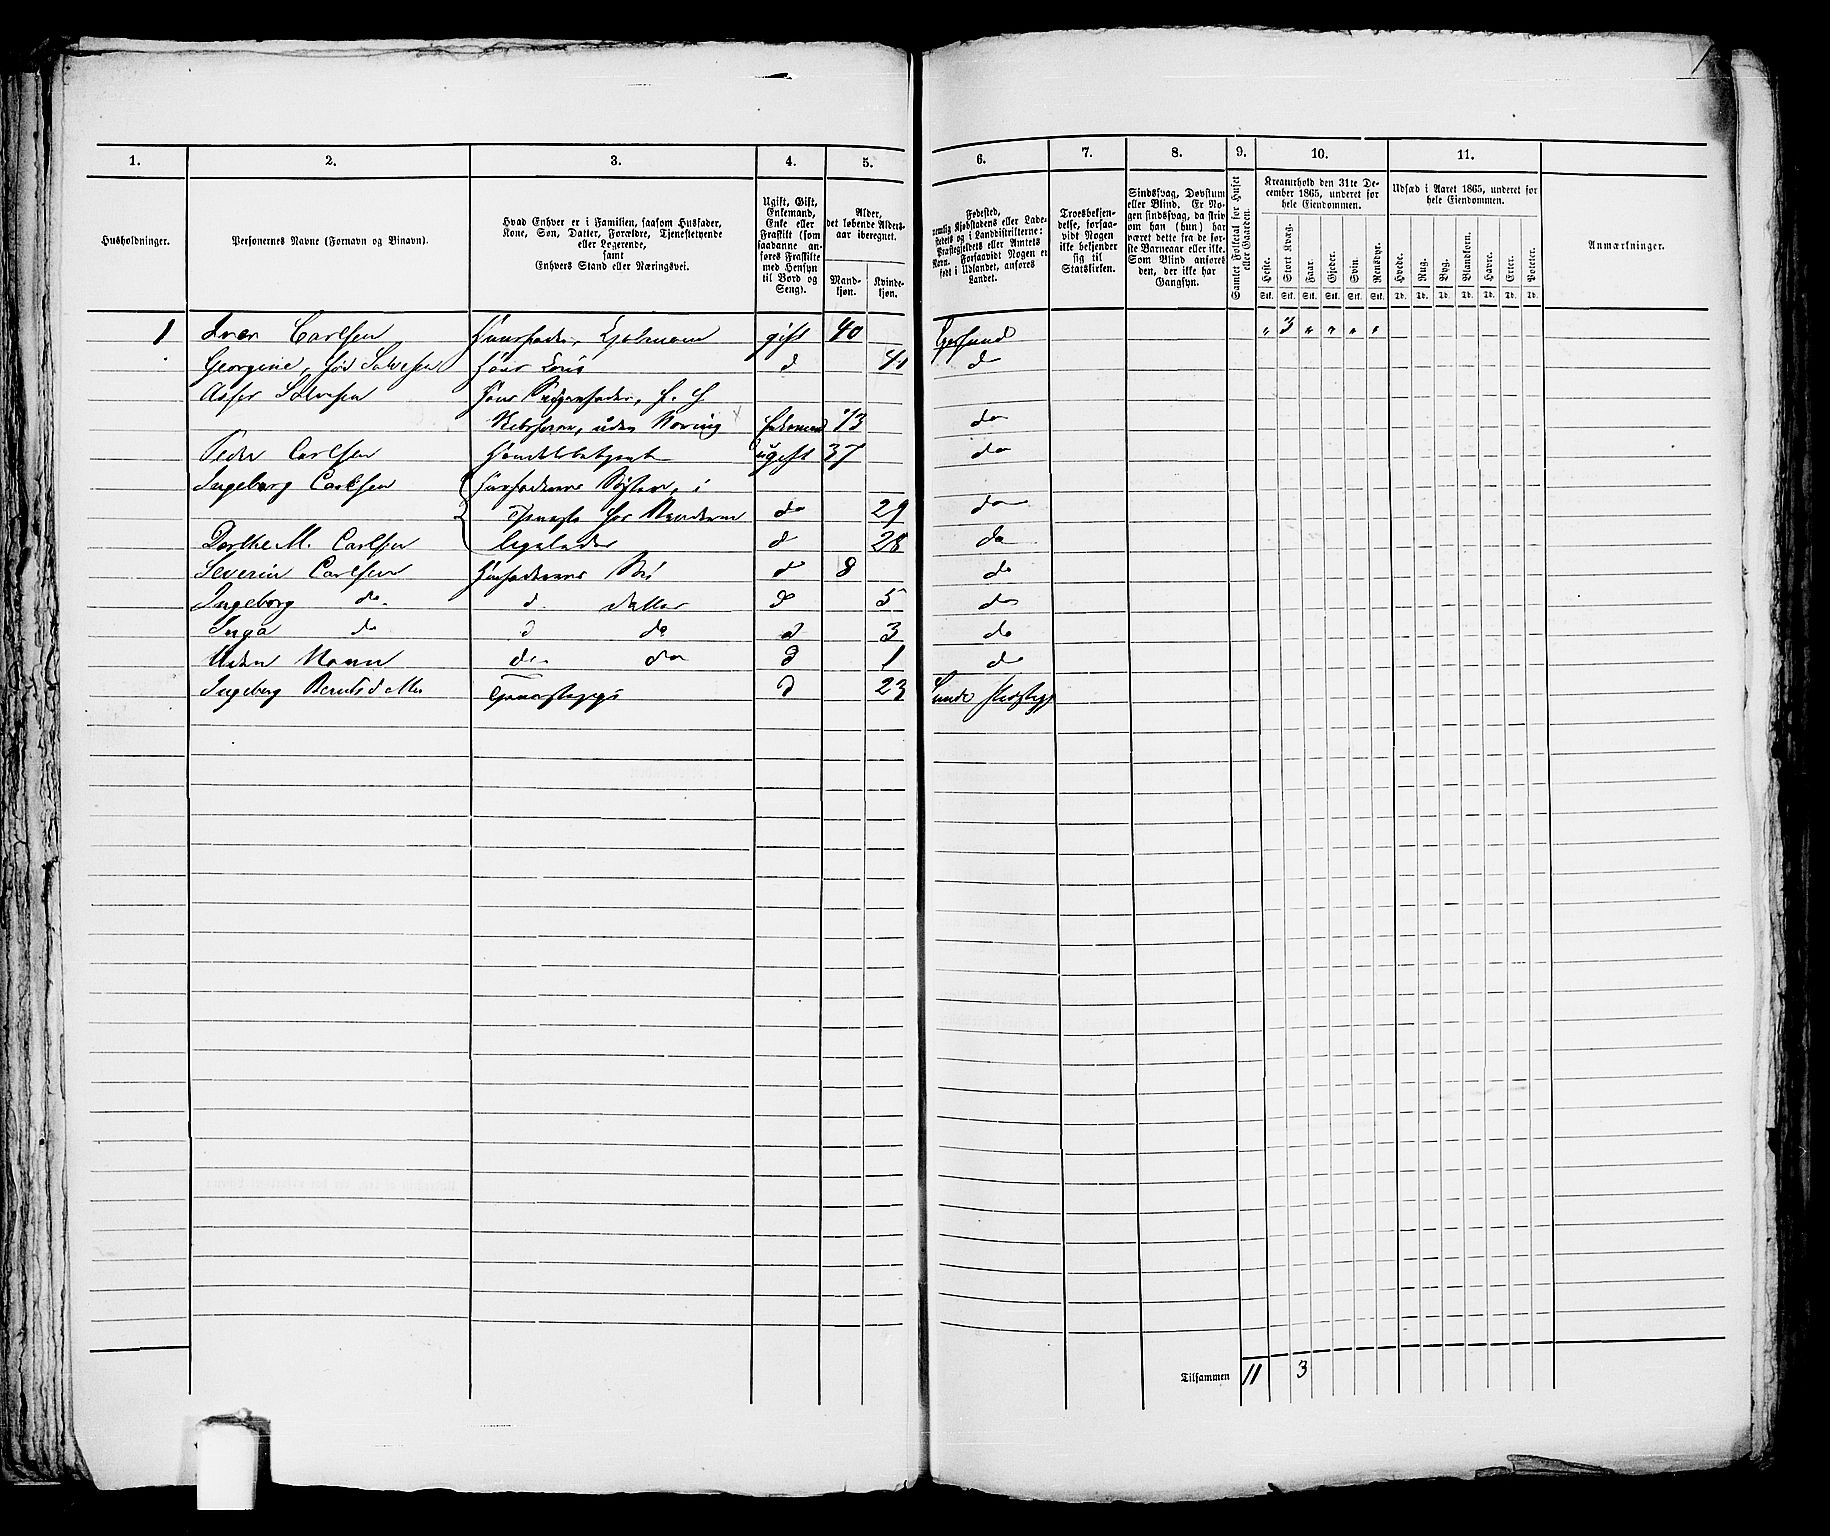 1
1. 2. 3. 4. 5. 6. 7. 8. 9. 10. 11.
Husholdninger.
Personernes Navne (Fornavn og Binavn).
Hvad Enhver er i Familien, saasom Husfader,
Kone, Søn, Datter, Forældre, Tjenestetyende
eller Logerende,
samt
Enhvers Stand eller Næringsvei.
Ugift, Gift,
Enkemand,
Enke eller
Fraskilt (som
saadanne an-
føres Fraskilte
med Hensyn
til Bord og
Seng).
Alder,
det løbende Alders-
aar iberegnet.
Mand-
kjøn.
Kvinde-
kjøn.
Fødested,
nemlig Kjøbstadens eller Lade-
stedets og i Landdistrikterne:
Præstegjeldets eller Amtets
Navn. Forsaavidt Nogen er
født i Udlandet, anføres
Landet.
Troesbekjen-
delse, forsaa-
vidt Nogen
ikke bekjender
sig til
Statskirken.
Sindssvag, Døvstum
eller Blind. Er No-
gen sindssvag, da skriv
om han (hun) har
været dette fra de før-
ste Barneaar eller ikke.
Som Blind anføres
den, der ikke har
Gangsyn.
Samlet Folketal for Huset
eller Gaarden.
Kreaturhold den 31te De-
cember 1865, underet for
hele Eiendommen.
Heste. Stort Kvæg. Faar. Gjeder. Svin. Rensdyr.
Stk. Stk. Stk. Stk. Stk. Stk.
Udsæd i Aaret 1865, underet for
hele Eiendommen.
Hvede. Rug. Byg. Blandkorn. Havre. Erter. Poteter.
Td. Td. Td. Td. Td. Td. Td.
Anmærkninger.
1 Iver Carlsen Huusfader, gift 40 " 3 " " " "
Georgine, fød Salvesen Hans Kone d do
Asser Salvesen Hans
uden Næring 73 do
Peder Carlsen Handelsbetjent ugift 37 do
Ingeborg Carlsen Huusfaderens Søstre, i
Tjeneste for do 29 do
Dorthe M. Carlsen d 28 do
Severin Carlsen Huusfaderens d 8 do
Ingeborg do. d. datter d 5 do
Inga do d do d 3 do
Uden Navn do do d 1 do
Ingeborg Berntsdatter Tjenestepige d 23
Tilsammen 11 3